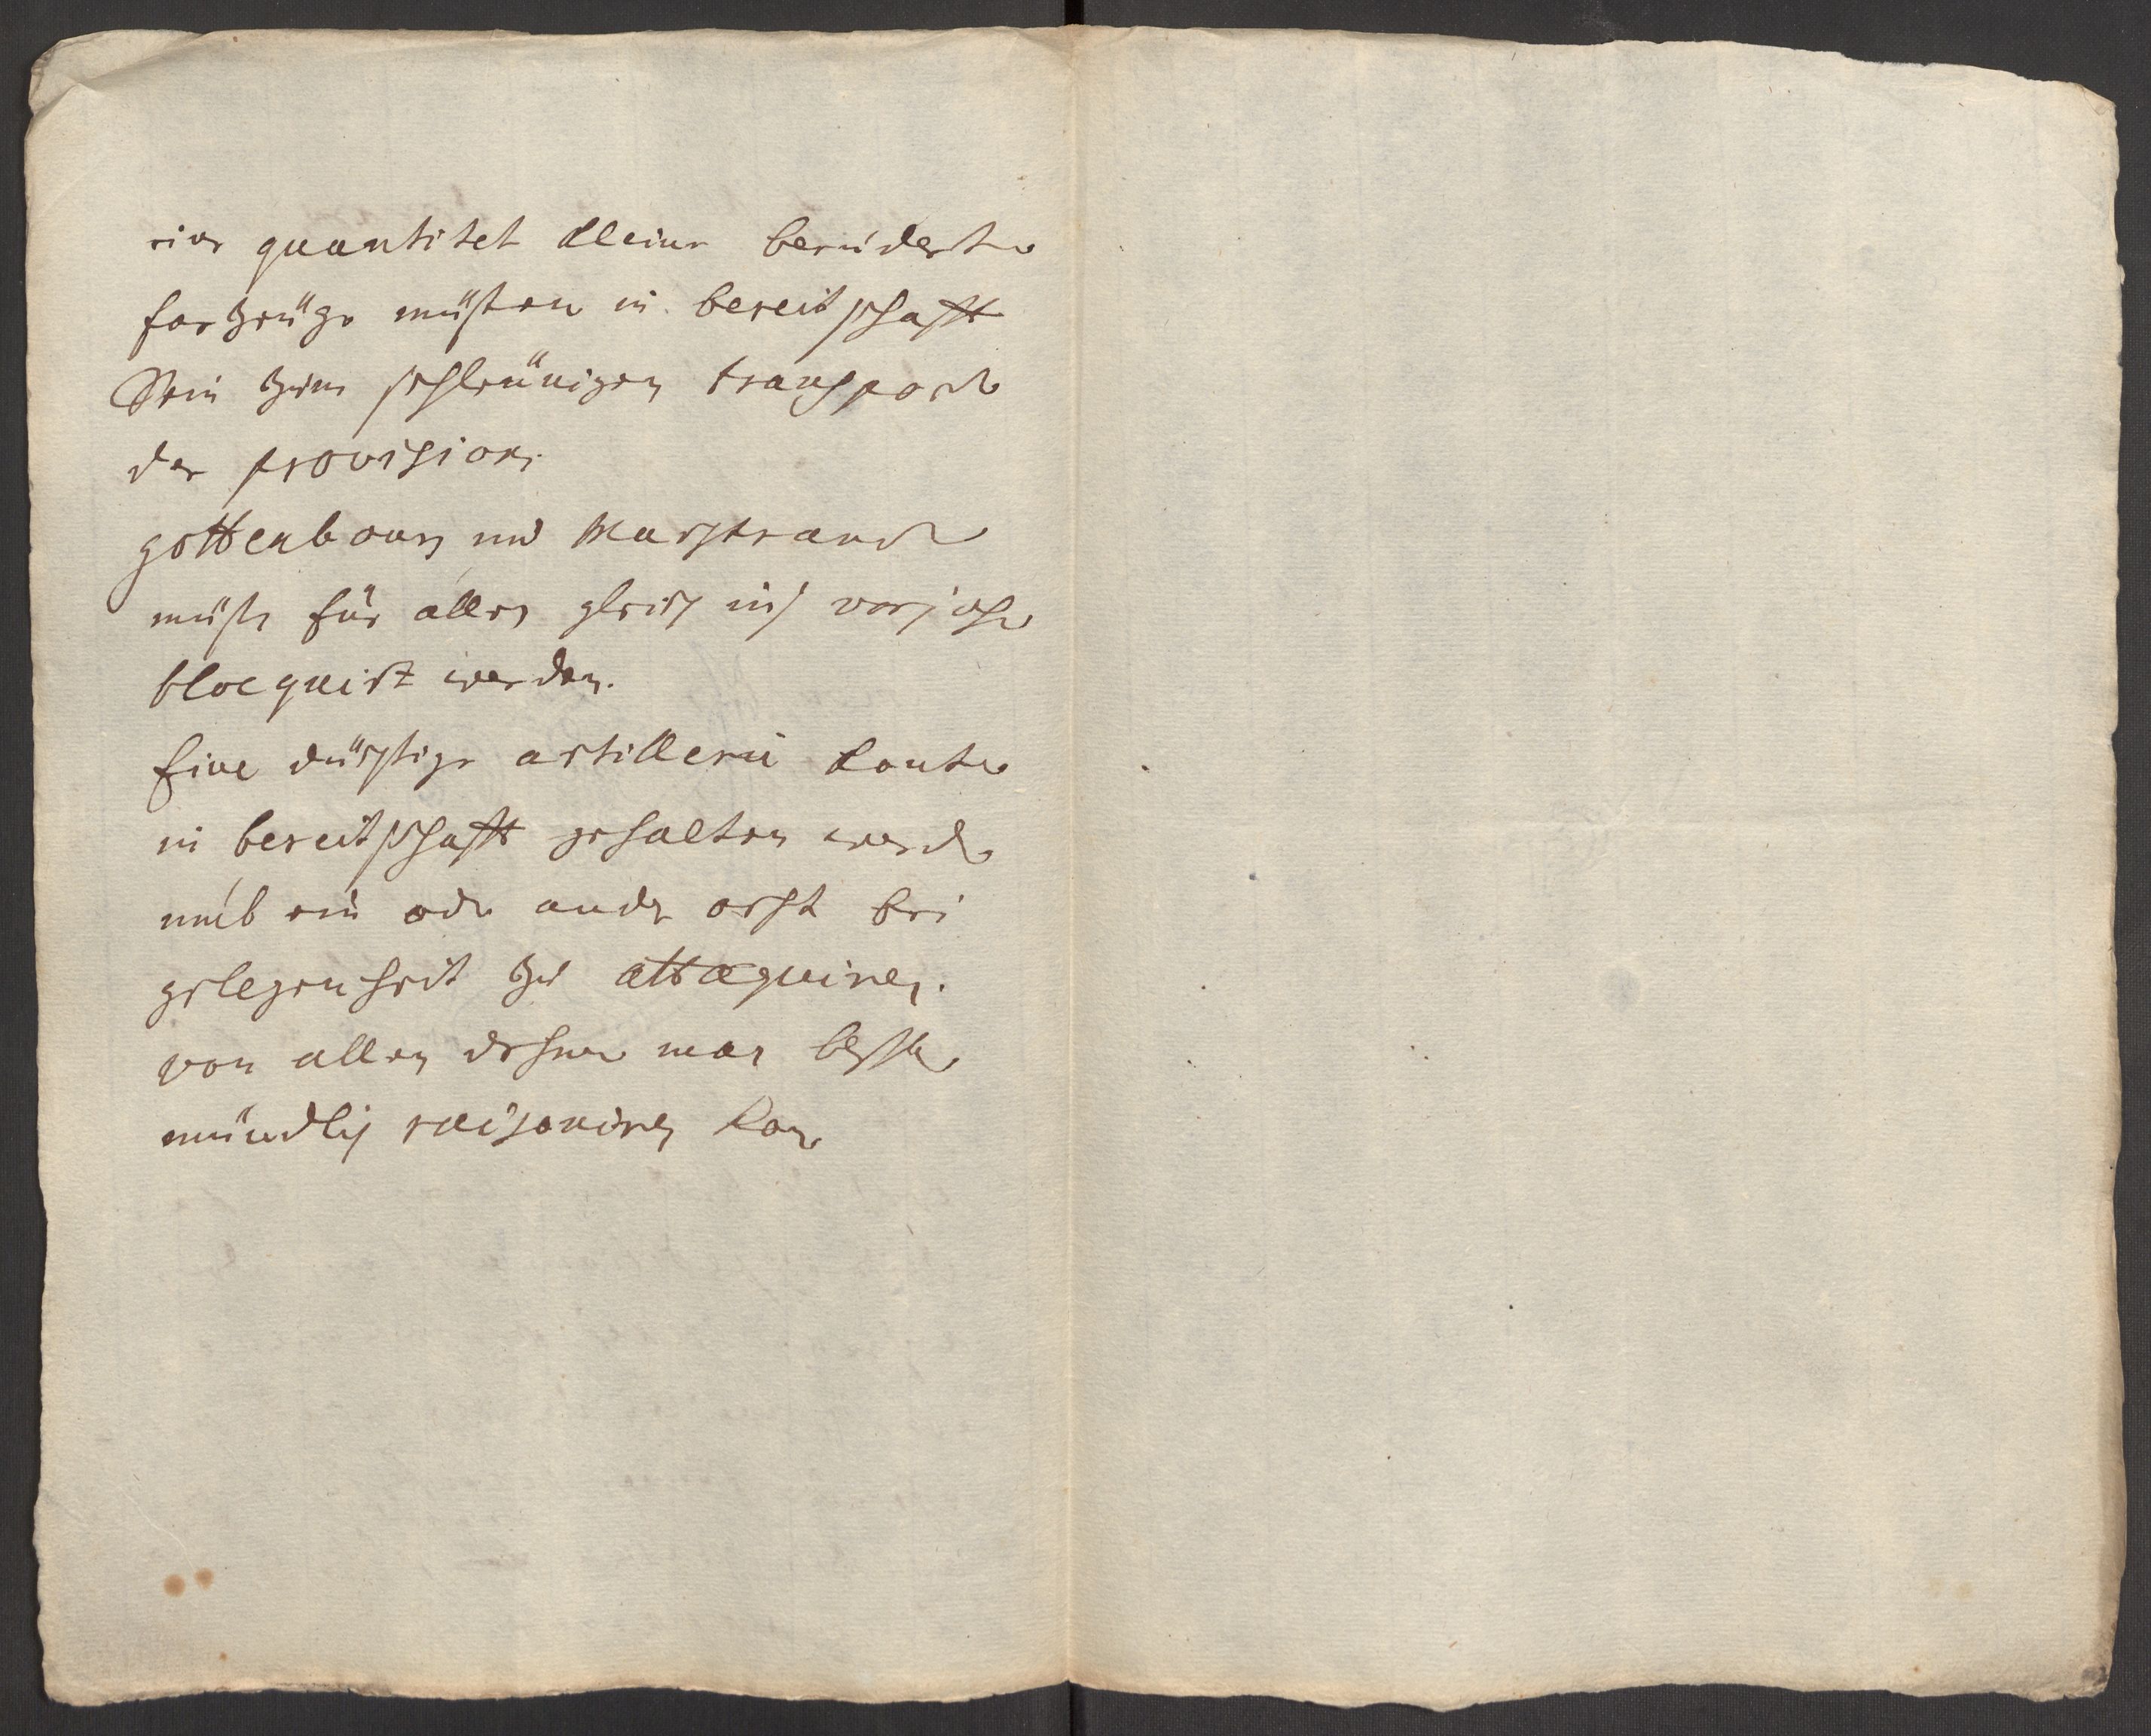 eine quantitet kleine beruderte
farzeüge müsten in bereitschafft
Sein zum schleünigen transport
der provision.
gottenbourg und Marstrand
müste für allen gleich ins vorjahr
blocquirt werden.
Eine düchtige artillerie konte
in bereitschafft gehalten werden
umb ein oder ander orht bei
gelegenheit zu attaequiren.
von allen dehme man beste
mündlich raisoniren kan